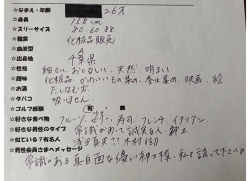 ☆なまえ・年齢 26才
☆身長 158cm
☆スリーサイズ 80.60.88
☆職業 化粧品販売
☆血液型 A
☆出身地 千葉県
☆性格 細かい おとなしい、天然、明るい
☆趣味 化粧品、かわいいもの集め、香水集め、映画、絵
☆お酒 たしなむ方
☆タバコ 吸いません
☆ゴルフ経験 有
☆好きな食べ物 フルーツ、ゼリー、寿司、フレンチ、イタリアン
☆好きな男性のタイプ 常識があって誠実な人、紳士
☆似ている?有名人 浅田真央?? 木村佳乃
☆男性会員さまへメッセージ
常識のある真面目な優しい紳士様、私を誘って下さいね。